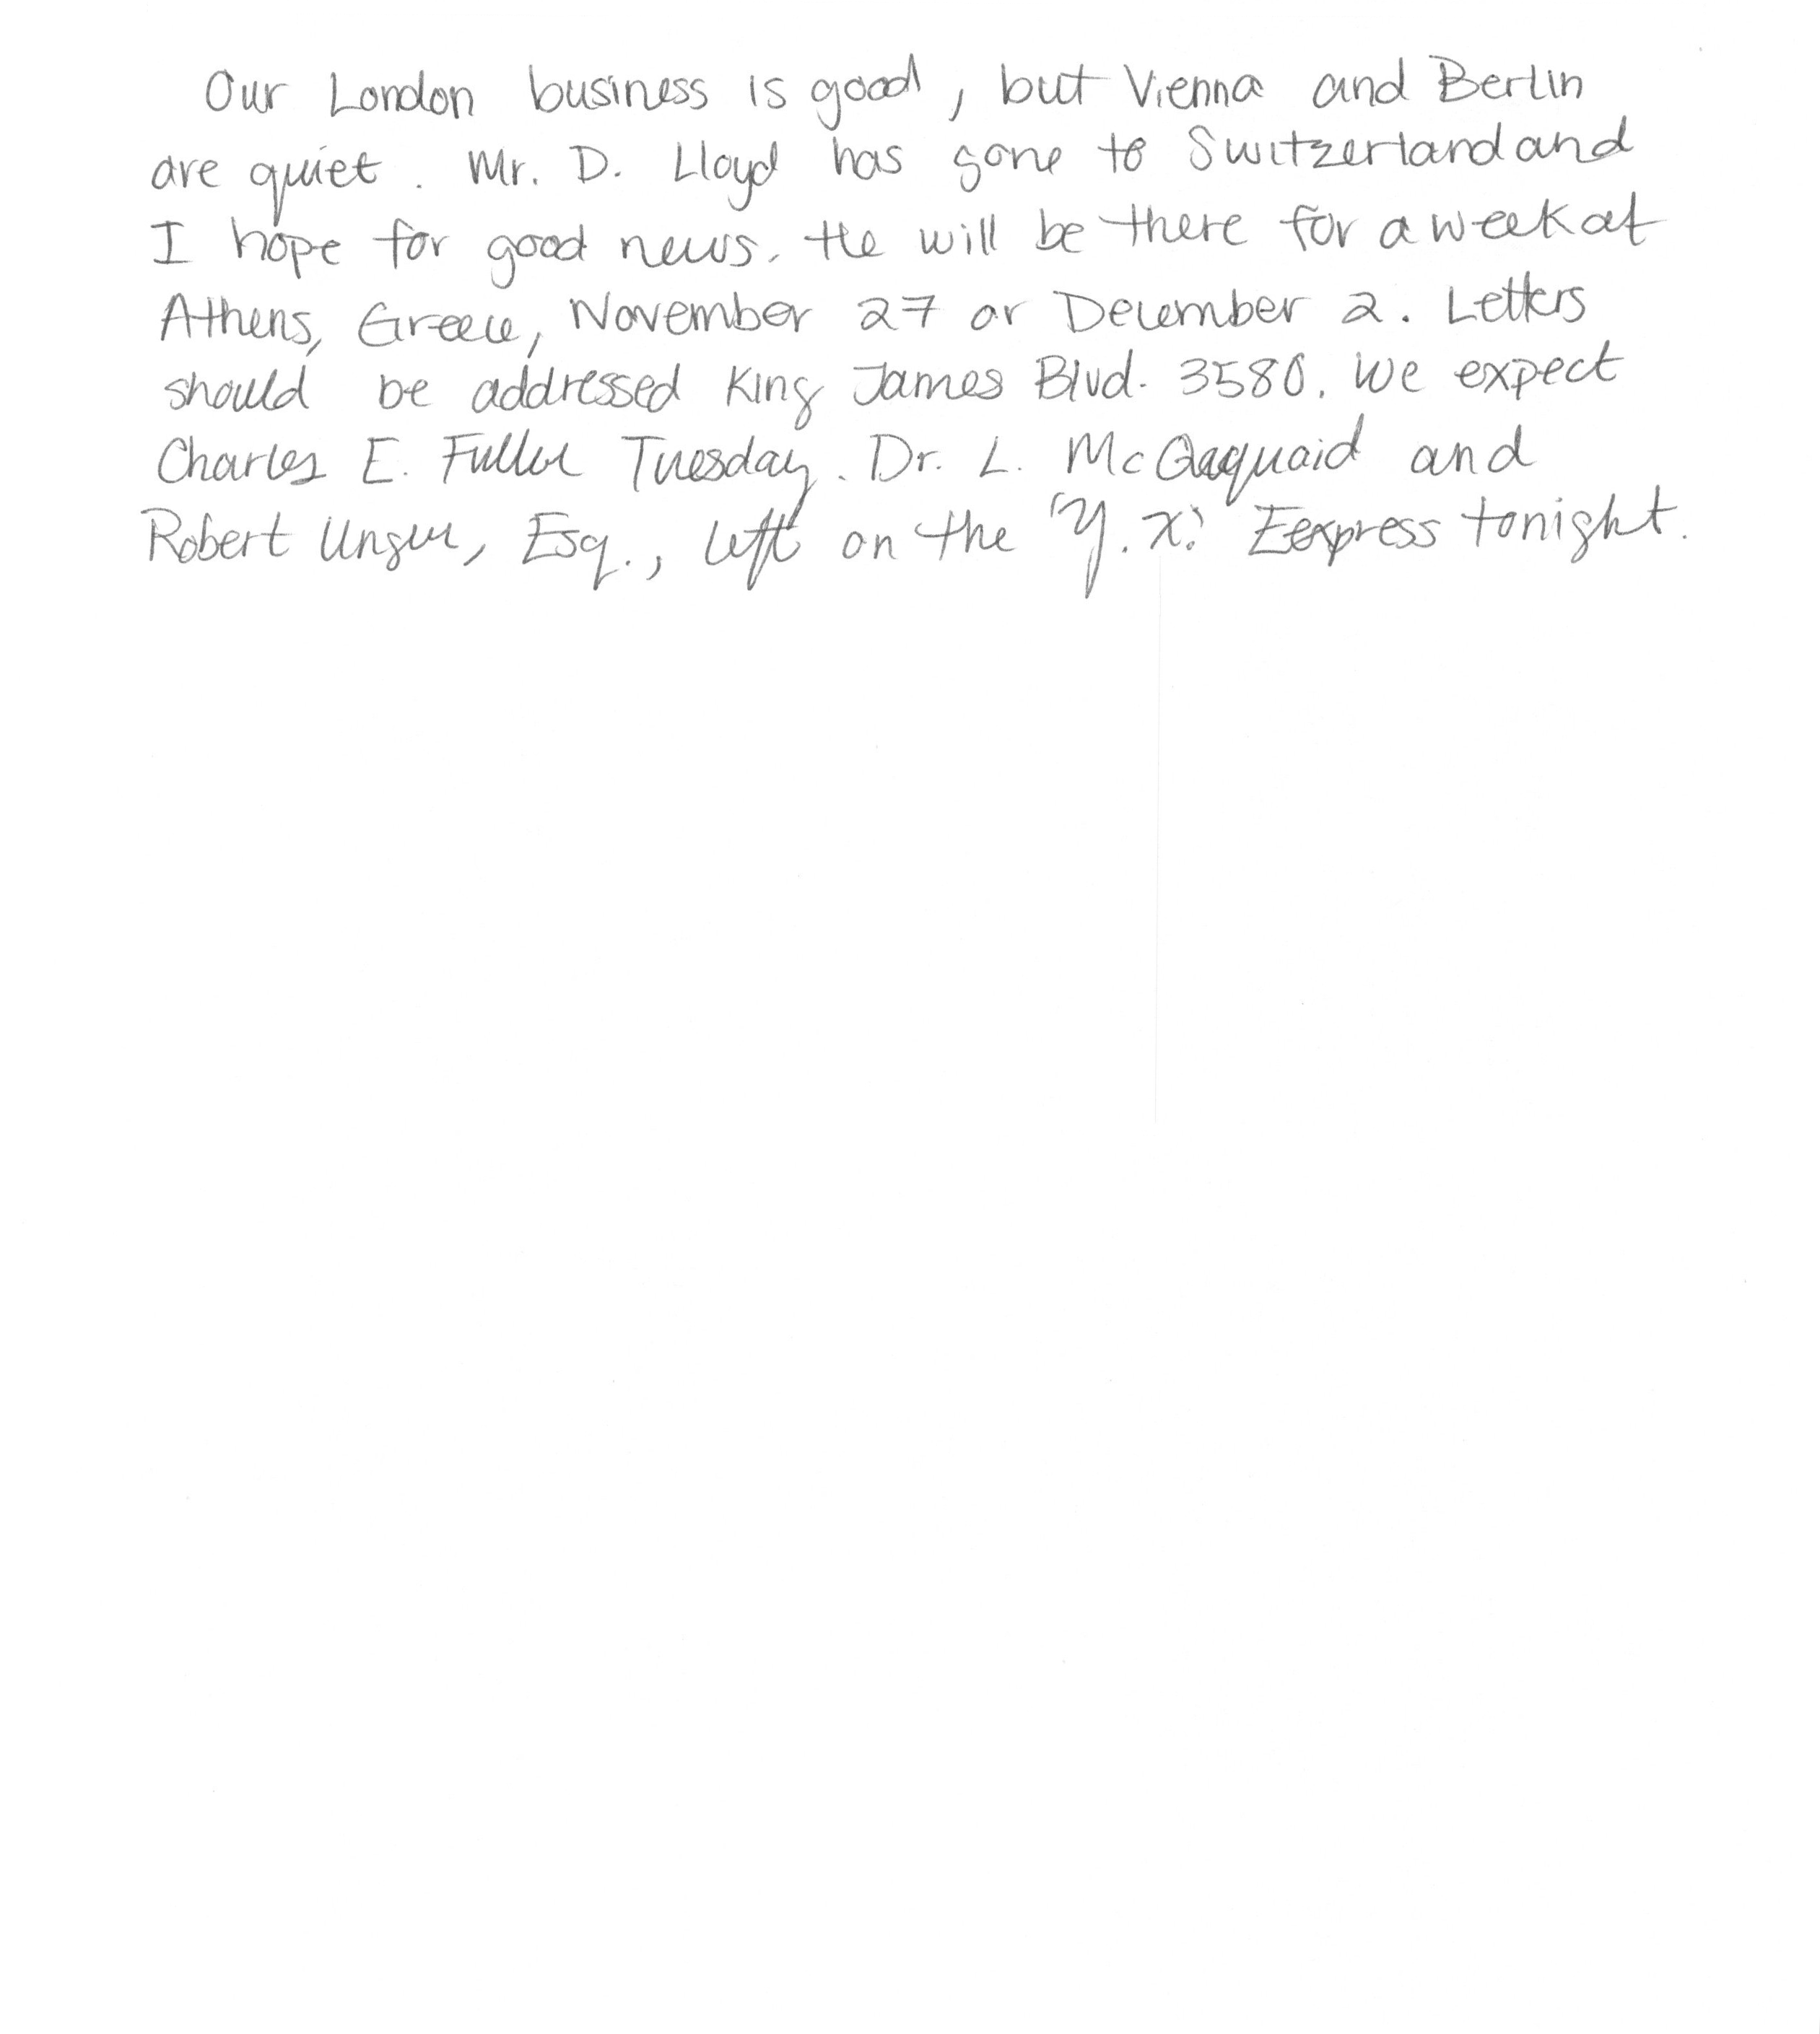 Our London business is good, but Vienna and Berlin
are quiet. Mr. D. Lloyd has gone to Switzerland and
I hope for good news. He will be there for a week at
Athens, Greece, November 27 or December 2. Letters
should be addressed King James Blvd. 3580. We expect
Charles E. Fuller Tuesday. Dr. L. McQuaid and
Robert Unger, Esq., left on the "Y.X." Express tonight.